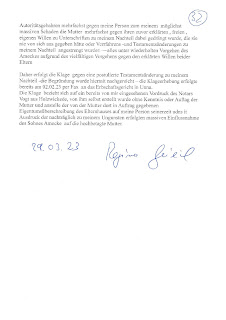 32
Autoritätsgebahren mehrfachst gegen meine Person zum meinem möglichst
massiven Schaden die Mutter mehrfachst gegen ihren zuvor erklärten , freien ,
eigenen Willen zu Unterschriften zu meinem Nachteil dabei genötigt wurde, die sie
nie von sich aus gegeben hätte oder Verfahrens - und Testamentsänderungen zu
meinem Nachteil angestrengt worden – alles unter wiederholtem Vorgehen des
Amtsrufes aufgrund des vielfältigen Vorgehens gegen den erklärten Willen beider
Eltern
Daher erfolgt die Klage gegen eine postulierte Testamentsänderung zu meinem
Nachteil , die Begründung wurde hiermit nachgereicht – die Klageerhebung erfolgte
bereits am 02.02.23 per Fax an das Erbschaftsgericht in Unna.
Die Klage bezieht sich auf ein bereits von mir eingesehenen Vordruck des Notars
Vogt aus Holzwickede, von ihm selbst erstellt wurde ohne Kenntnis oder Auftrag der
Mutter und anstelle der von der Mutter dort in Auftrag gegebenen
Eigentumsbeschreibung des Elternhauses auf meine Person seinerzeit oder it
Ausdruck der nachträglich zu meinen Ungunsten erfolgten massiven Einflussnahme
des Sohnes Annecke auf die hochbetagte Mutter.
29.03.23 Regina